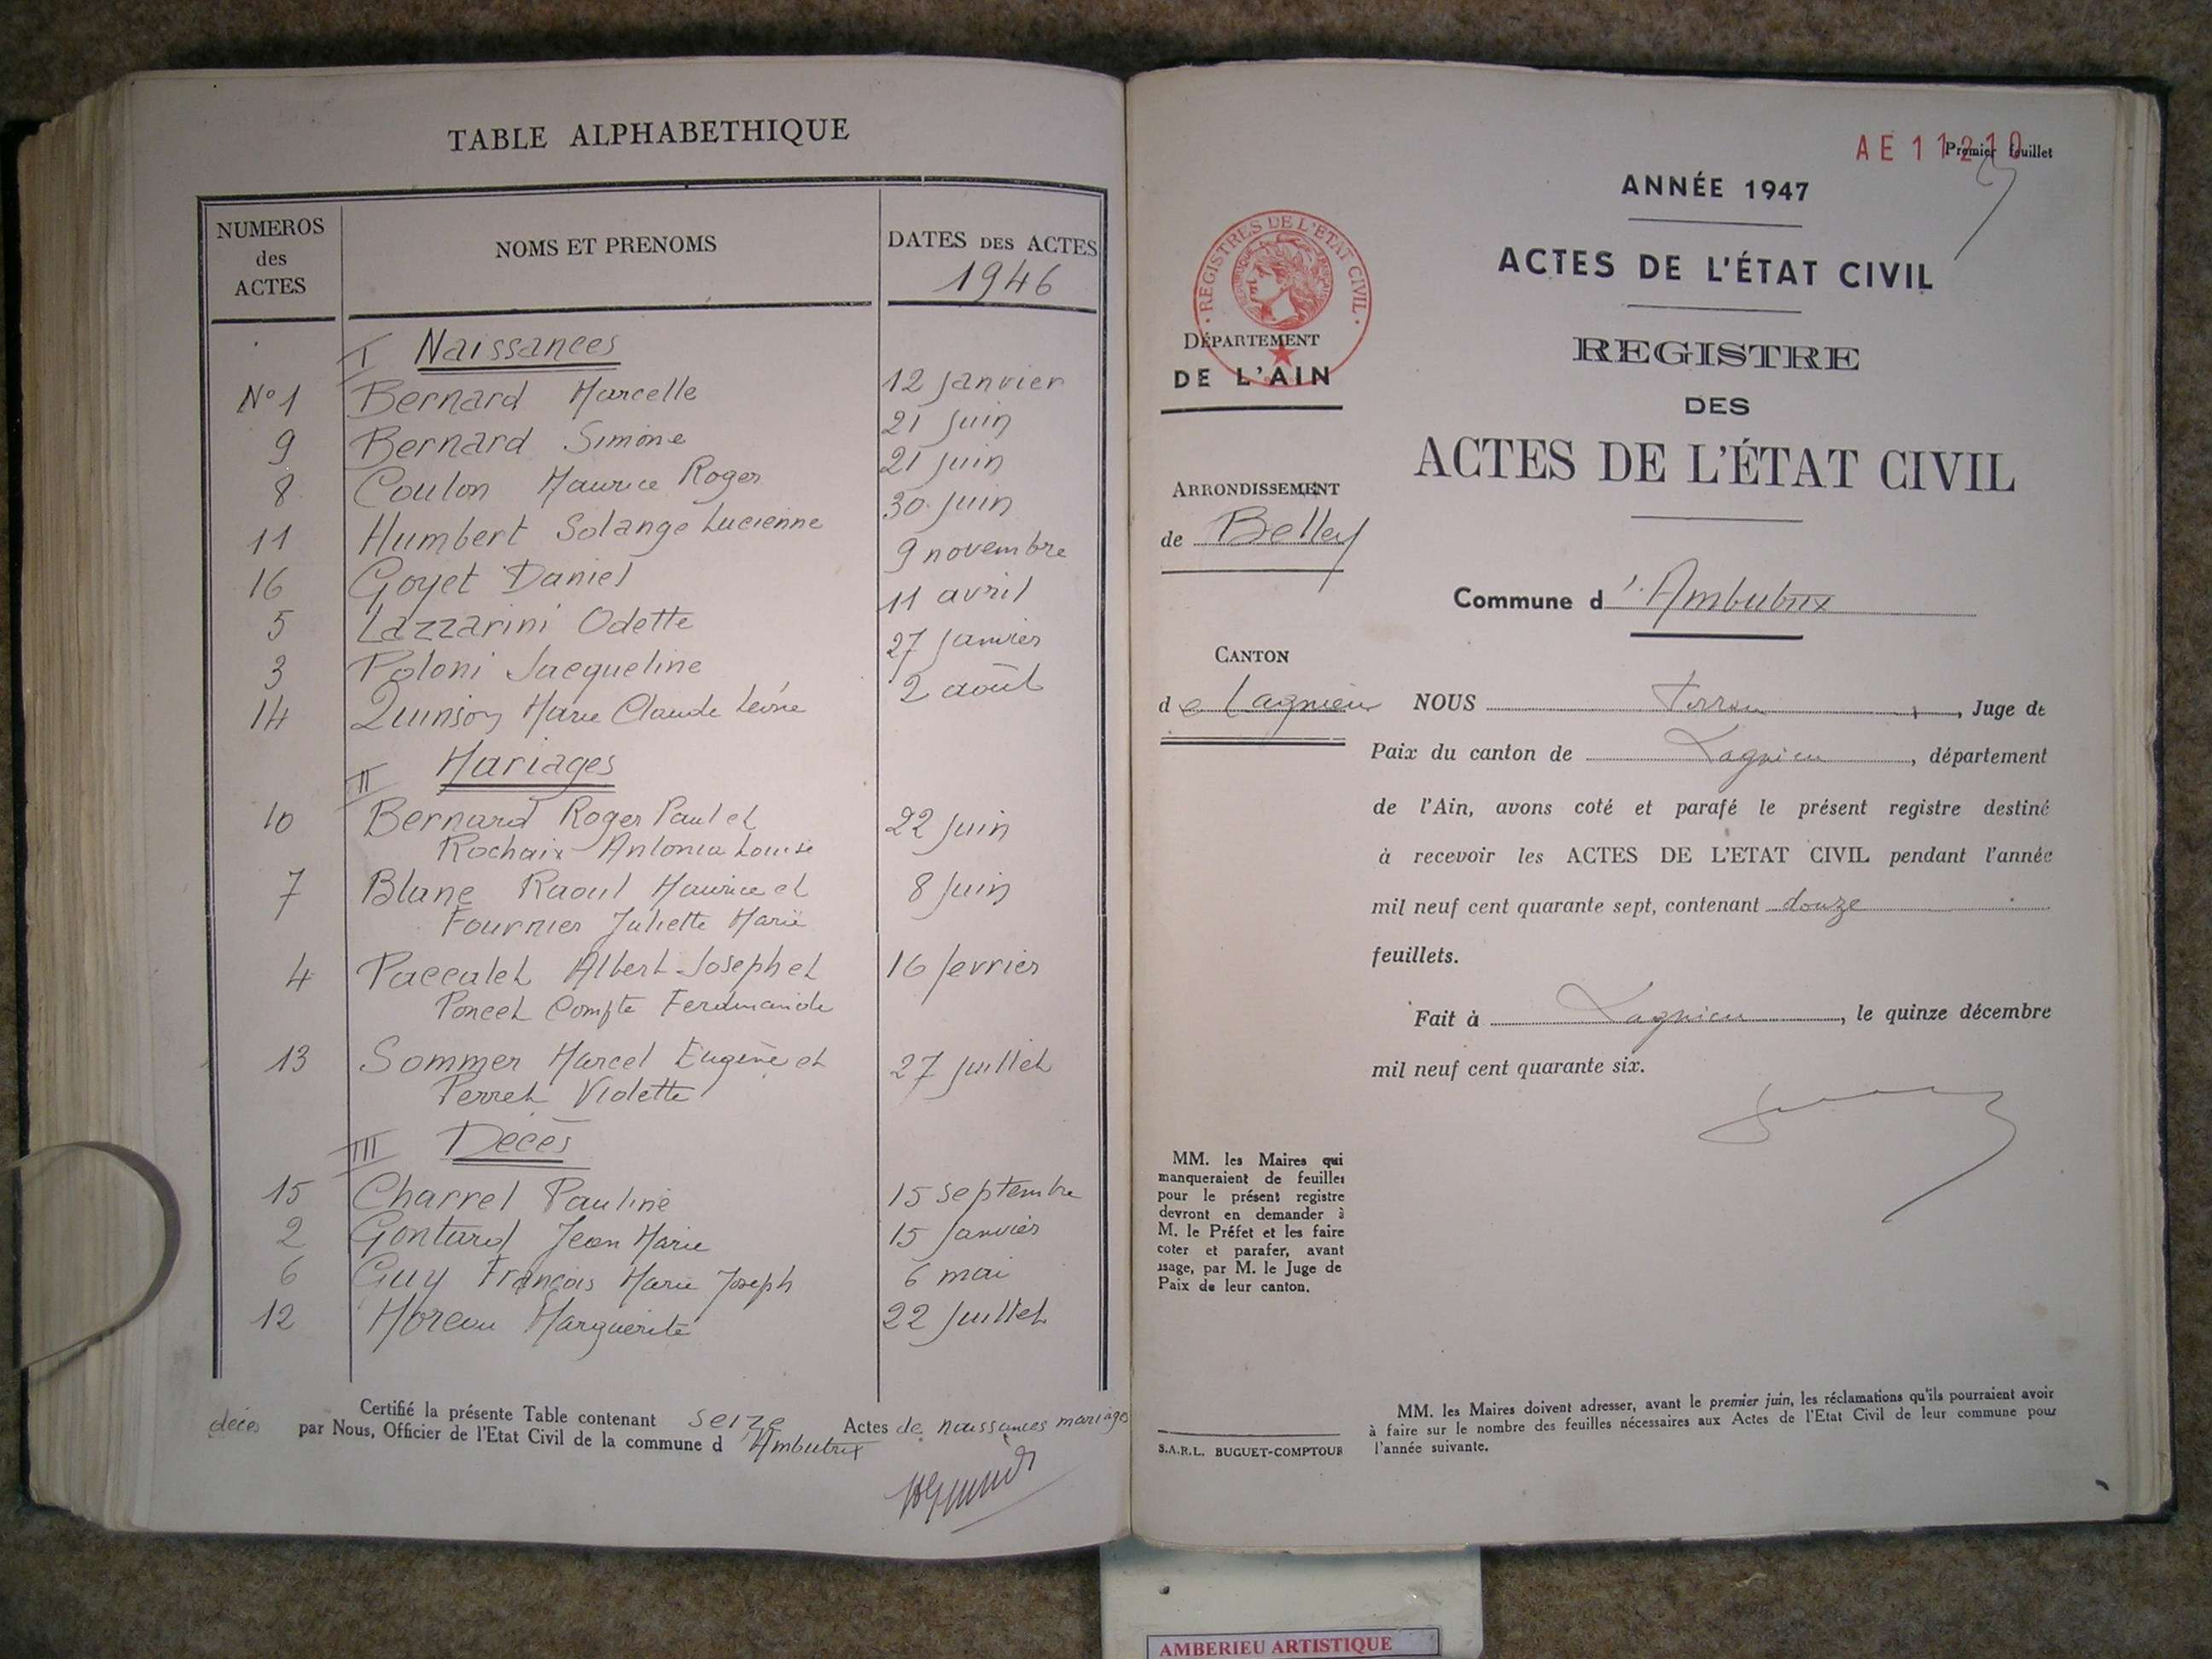 TABLE ALPHABETHIQUE
NUMEROS des ACTES
NOMS ET PRENOMS
DATES DES ACTES
1946
I Naissances
N° 1 Bernard Marcelle 12 janvier
9 Bernard Simone 21 juin
8 Coulon Maurice Roger 21 juin
11 Humbert Solange Lucienne 30 juin
16 Goyet Daniel 9 novembre
5 Lazzarini Odette 11 avril
3 Poloni Jacqueline 27 janvier
14 Quinson Marie Claude Léonie 2 août
II Mariages
10 Bernard Roger Paul et 22 juin
Rochaix Antonia Louise
7 Blanc Raoul Maurice et 8 juin
Fournier Juliette Marie
4 Paccalet Albert Joseph et 16 fevrier
Poncet Compte Ferdinande
13 Sommer Marcel Eugène et 27 juillet
Perret Violette
III Decès
15 Charrel Pauline 15 septembre
2 Gontard Jean Marie 15 janvier
6 Guy François Marie Joseph 6 mai
12 Moreau Marguerite 22 juillet
Certifié la présente Table contenant seize Actes de naissances mariages
décès par Nous, Officier de l'Etat Civil de la commune d'Ambutrix
AE 11210
Premier feuillet
ANNÉE 1947
ACTES DE L'ÉTAT CIVIL
REGISTRE
DES
ACTES DE L'ÉTAT CIVIL
REGISTRES DE L'ETAT CIVIL
DÉPARTEMENT
DE L'AIN
ARRONDISSEMENT
de Belley
CANTON
de Lagnieu
Commune d'Ambutrix
NOUS , Juge de
Paix du canton de Lagnieu, département
de l'Ain, avons coté et parafé le présent registre destiné
à recevoir les ACTES DE L'ETAT CIVIL pendant l'année
mil neuf cent quarante sept, contenant douze
feuillets.
Fait à Lagnieu, le quinze décembre
mil neuf cent quarante six.
MM. les Maires qui
manqueraient de feuilles
pour le présent registre
devront en demander à
M. le Préfet et les faire
coter et parafer, avant
usage, par M. le Juge de
Paix de leur canton.
S.A.R.L. BUGUET-COMPTOUR
MM. les Maires doivent adresser, avant le premier juin, les réclamations qu'ils pourraient avoir
à faire sur le nombre des feuilles nécessaires aux Actes de l'Etat Civil de leur commune pour
l'année suivante.
AMBERIEU ARTISTIQUE